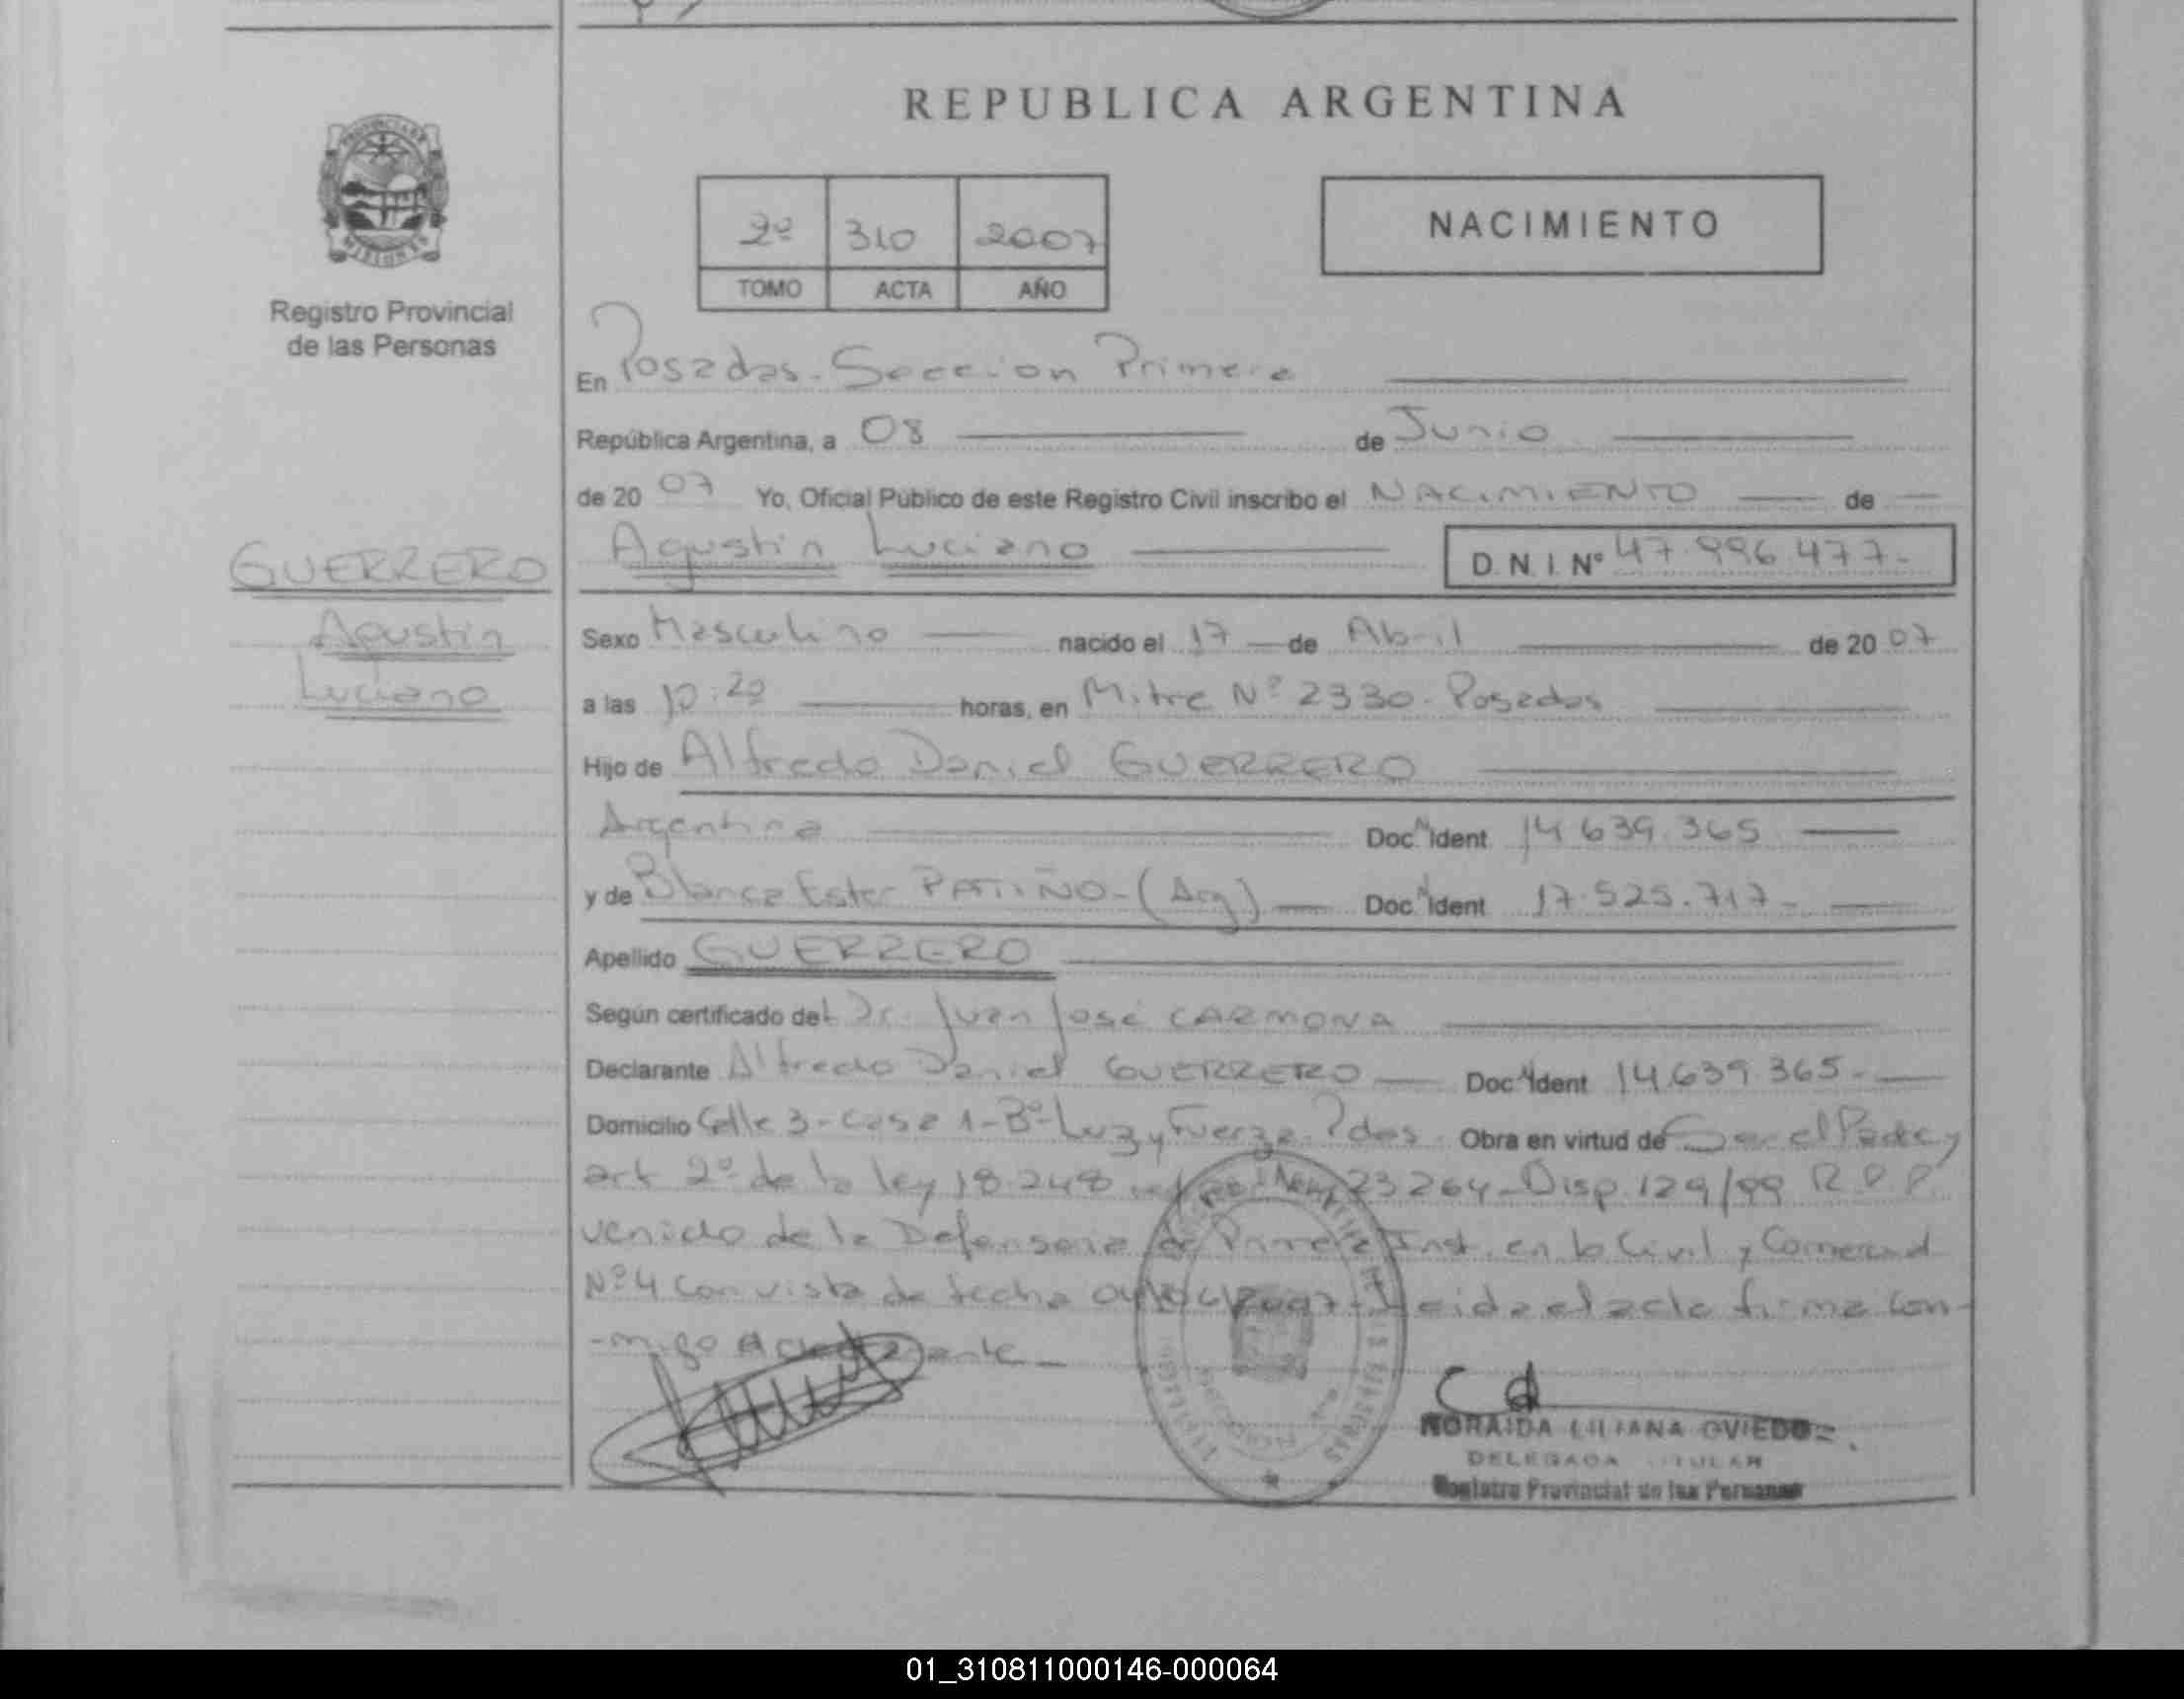 REPUBLICA ARGENTINA
PROVINCIA DE
MISIONES
Registro Provincial
de las Personas
2º 310 2007
TOMO ACTA AÑO
NACIMIENTO
En Posadas. Seccion Primera
República Argentina, a 08 de Junio
de 20 07 Yo, Oficial Público de este Registro Civil inscribo el NACIMIENTO de
GUERRERO
Agustin
Luciano
Agustin Luciano D.N.I. Nº 47.996.477-
Sexo Masculino nacido el 17 de Abril de 20 07
a las horas, en Mitre Nº 2330. Posadas
Hijo de Alfredo Daniel GUERRERO
Argentina Doc. Ident. 14.639.365
y de Blanca Ester PATIÑO-(Arg) Doc. Ident. 17.525.717-
Apellido GUERRERO
Según certificado del Dr. Juan José CARMONA
Declarante Alfredo Daniel GUERRERO Doc. Ident. 14.639.365.
Domicilio Calle 3- casa 1-Bº Luz y Fuerza. Pdas. Obra en virtud de Ser el Padre y
art 2º de la ley 18.248 23264-Disp.129/99 R.P.P.
venido de la Defensoria de Primera Inst. en lo Civil y Comercial
Nº4 con vista de fecha Leida el acta firma con-
-migo
NORAIDA LILIANA OVIEDO
DELEGADA TITULAR
Registro Provincial de las Personas
01_310811000146-000064